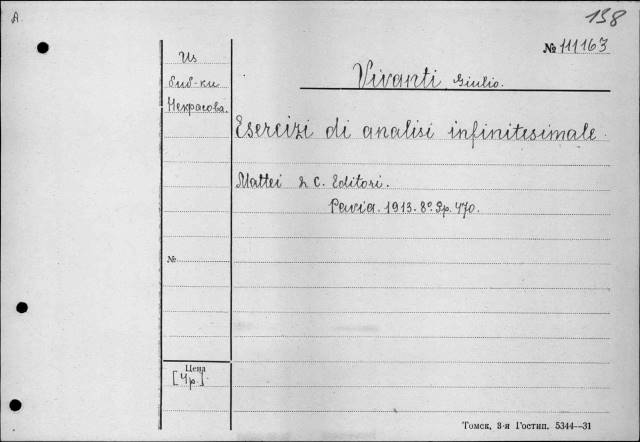 A.
138
№ 111163
Из
биб-ки
Некрасова.
Vivanti Giulio.
Esercizi di analisi infinitesimale.
Mattei & C. Editori.
Pavia. 1913. 8º. Pp. 470.
№
Цена
[4р.]
Томск, 3-я Гостип. 5344—31